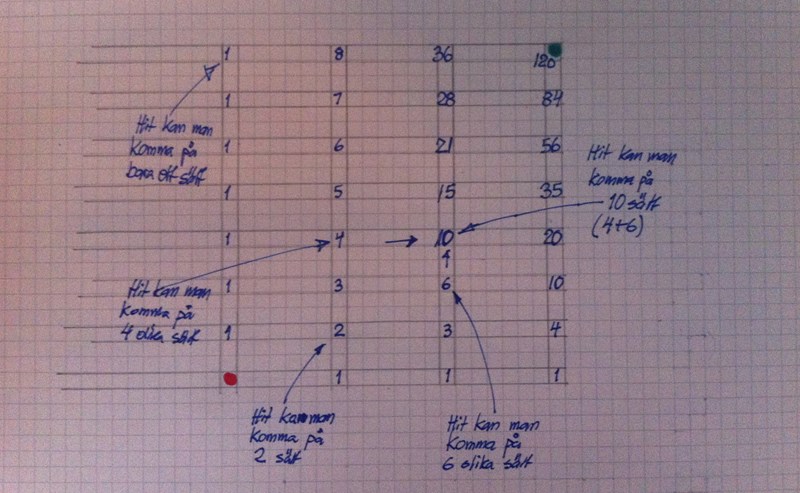 1 8 36 120
1 7 28 84
Hit kan man
komma på
bara ett sätt
1 6 21 56
Hit kan man
komma på
10 sätt
(4+6)
1 5 15 35
1 4 → 10 20
Hit kan man
komma på
4 olika sätt
1 3 6 10
1 2 3 4
1 1 1
Hit kan man
komma på
2 sätt
Hit kan man
komma på
6 olika sätt